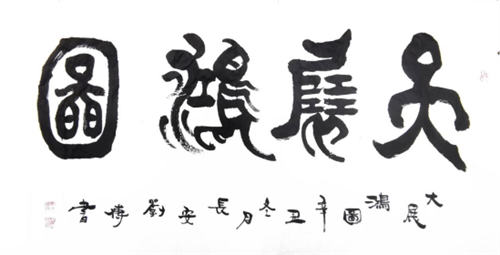 大展鴻圖
大展鴻圖辛丑冬月長安劉博書